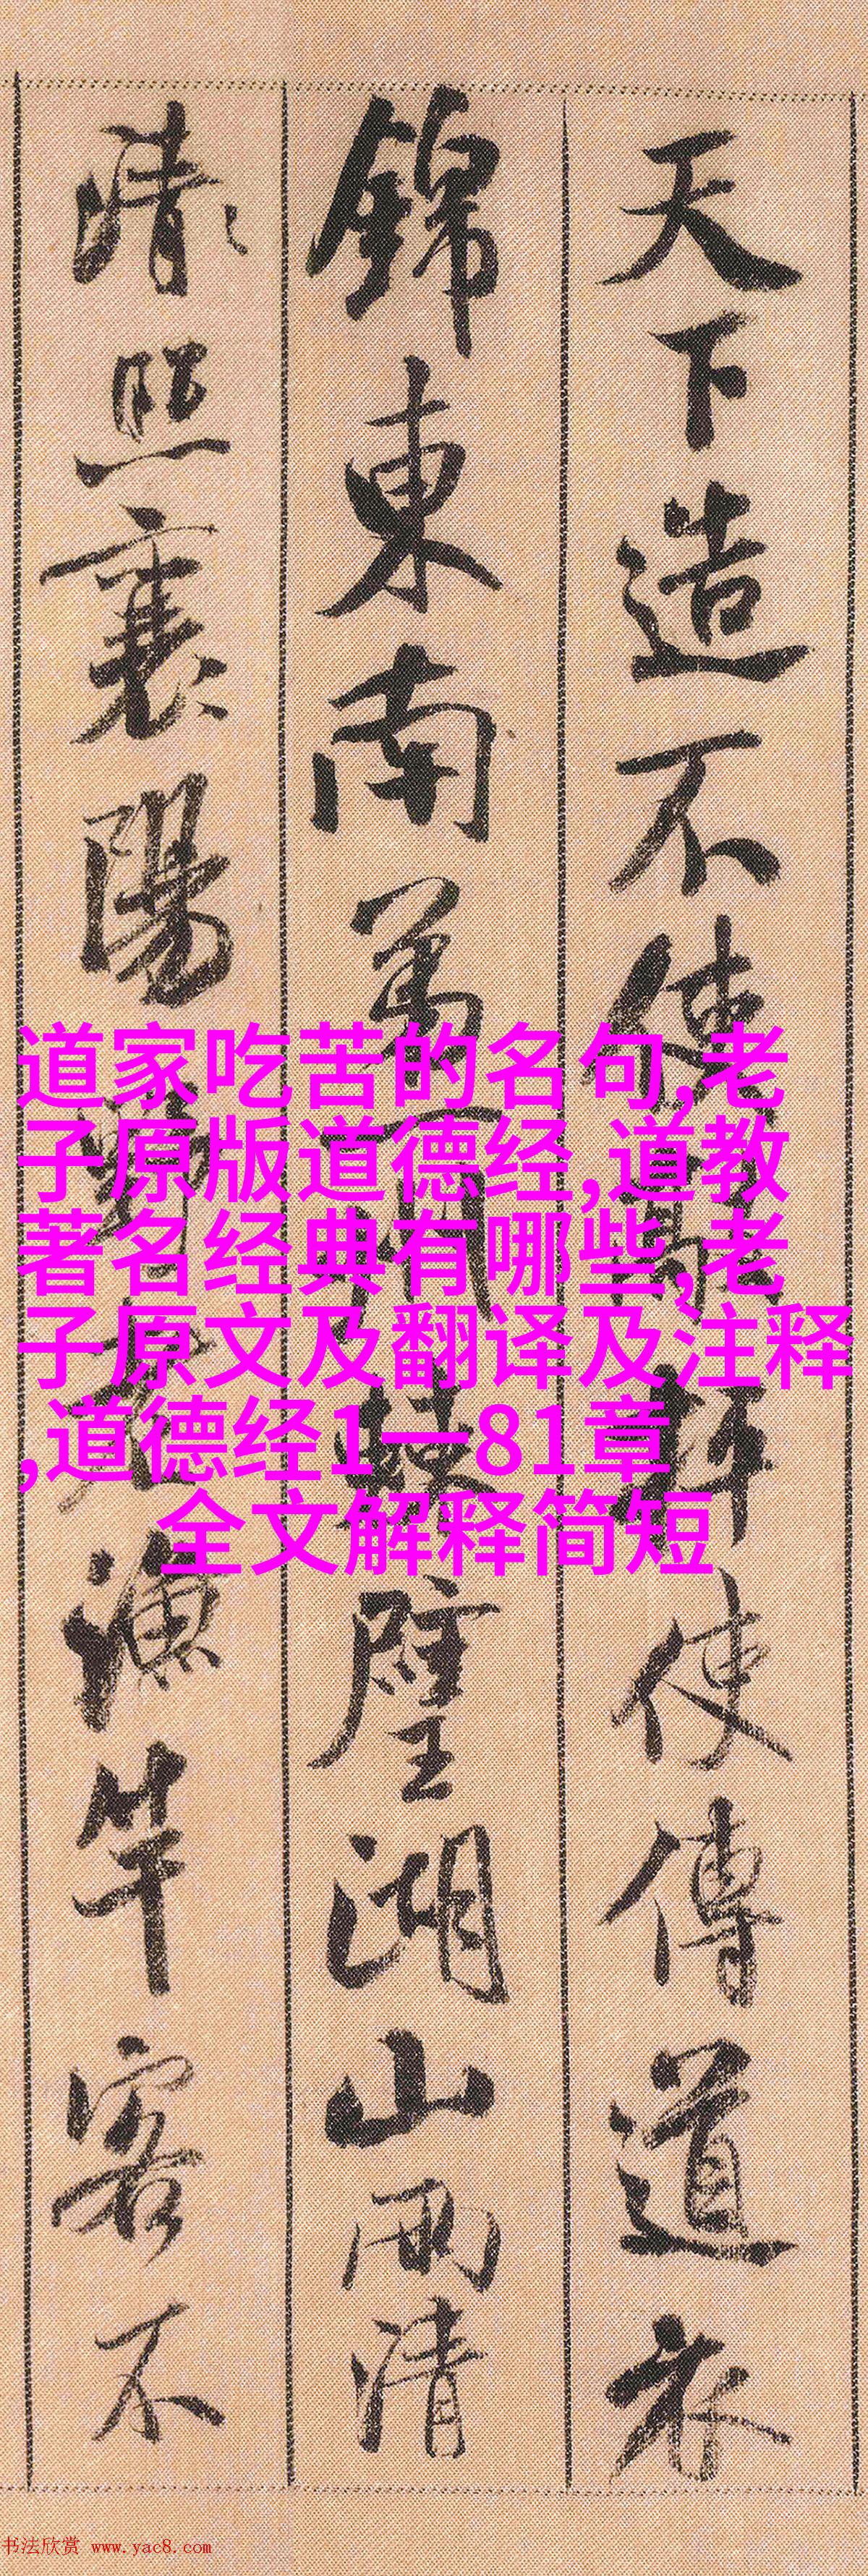 天下造不高軒使傳道衣
錦東南萬壁湖山雨清
清照襄陽漁竿客不
道家吃苦的名句,老
子原版道德经,道教
著名经典有哪些,老
子原文及翻译及注释
,道德经1一81章
全文解释简短
书法欣赏 www.yac8.com